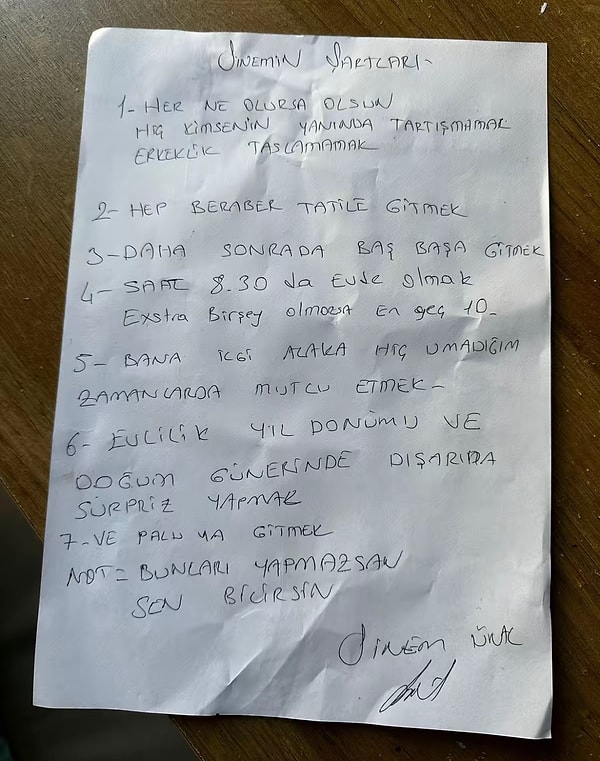 SİNEMİN ŞARTLARI-
1- HER NE OLURSA OLSUN
HİÇ KİMSENİN YANINDA TARTIŞMAMAK
ERKEKLİK TASLAMAMAK
2- HEP BERABER TATİLE GİTMEK
3- DAHA SONRADA BAŞ BAŞA GİTMEK
4- SAAT 8.30 da Evde olmak
Exstra Birşey olmazsa En geç 10-
5- BANA İLGİ ALAKA HİÇ UMADIĞIM
ZAMANLARDA MUTLU ETMEK-
6- EVLİLİK YIL DÖNÜMÜ VE
DOĞUM GÜNERİNDE DIŞARIDA
SÜRPRİZ YAPMAK
7- VE PALU YA GİTMEK
NOT= BUNLARI YAPMAZSAN
SEN BİLİRSİN
SİNEM ÜNAL